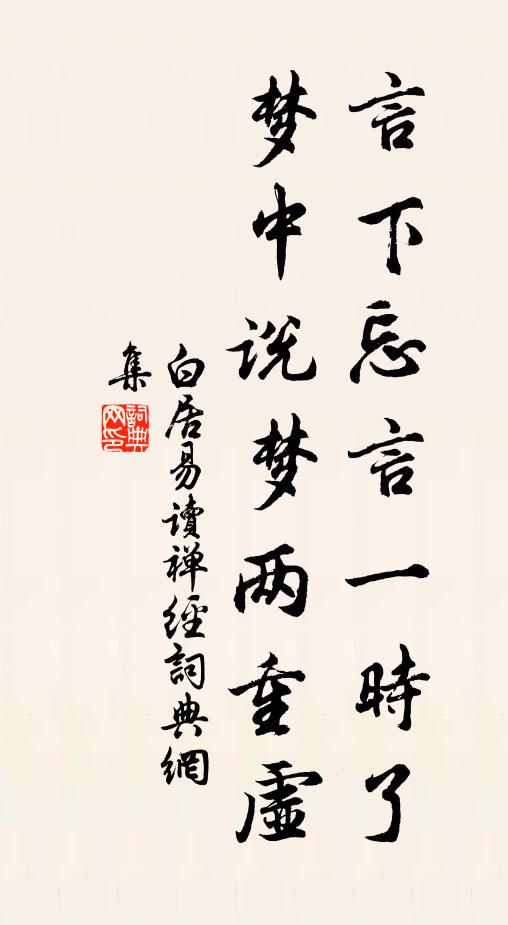 言下忘言一時了
梦中说梦两重虚
白居易讀禅經詞典網
集
詞典网印